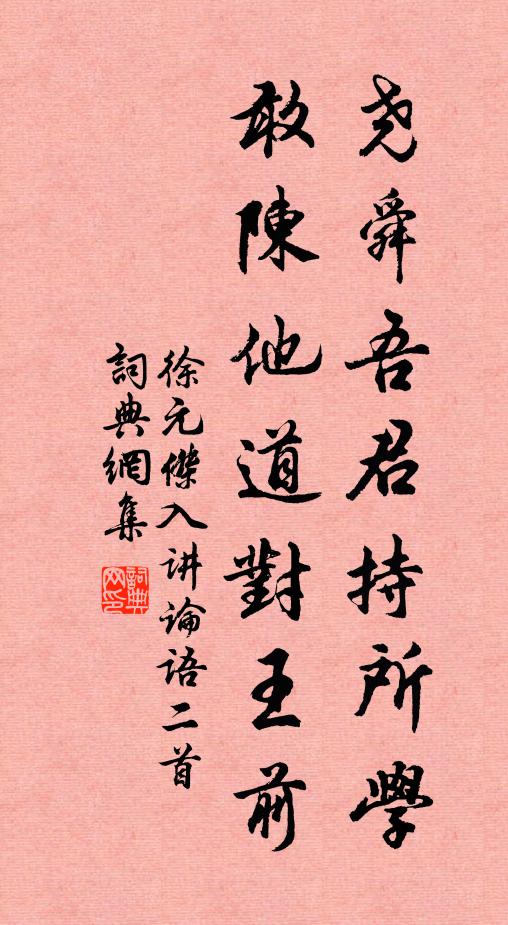 尧舜吾君持所學
敢陳他道對王前
徐元傑入讲論语二首
詞典網集
詞典网印